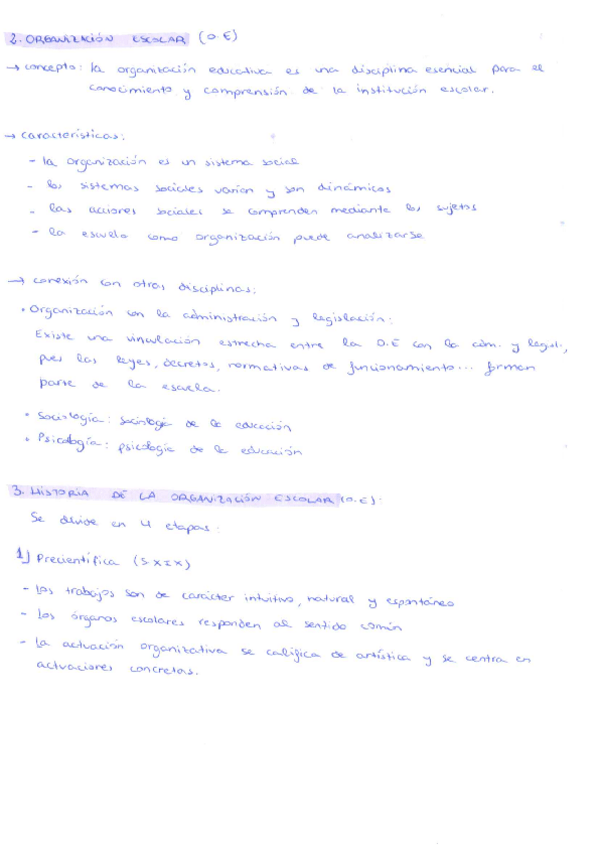 2. ORGANIZACIÓN ESCOLAR (O.E)
→ concepto: la organización educativa es una disciplina esencial para el
conocimiento y comprensión de la institución escolar.
→ características:
- la organización es un sistema social
- los sistemas sociales varían y son dinámicos
- las acciones sociales se comprenden mediante los sujetos
- la escuela como organización puede analizarse
→ conexión con otras disciplinas:
• Organización con la administración y legislación:
Existe una vinculación estrecha entre la O.E con la adm. y legisl.,
pues las leyes, decretos, normativas de funcionamiento... forman
parte de la escuela.
• Sociología: sociología de la educación
• Psicología: psicología de la educación
3. HISTORIA DE LA ORGANIZACIÓN ESCOLAR (O.E):
Se divide en 4 etapas:
1) Precientífica (S.XIX)
- Los trabajos son de carácter intuitivo, natural y espontáneo
- Los órganos escolares responden al sentido común
- La actuación organizativa se califica de artística y se centra en
actuaciones concretas.